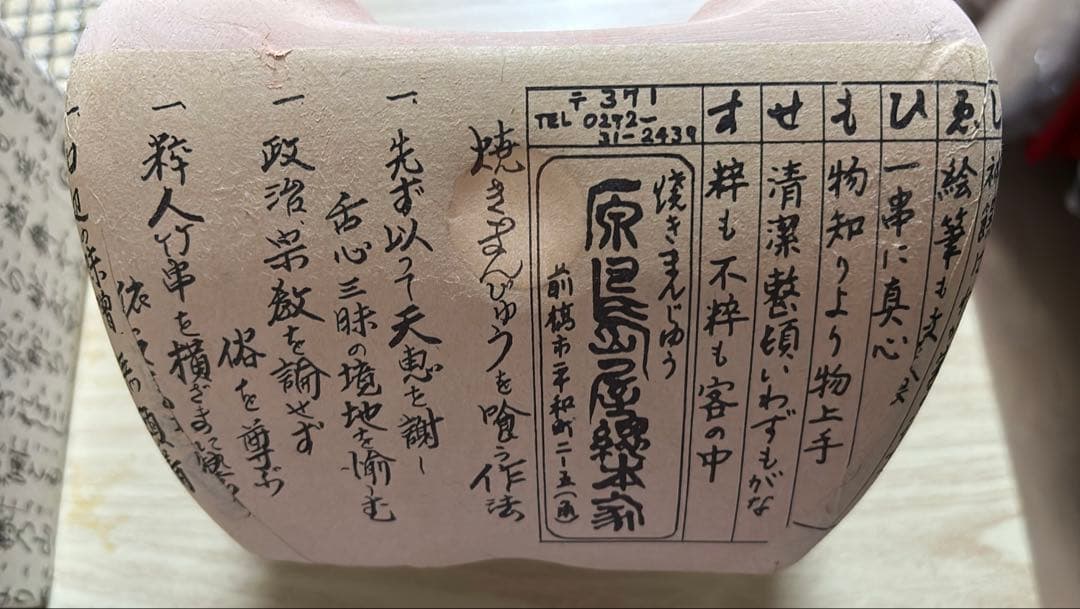 ゑ 絵筆も
ひ 一串に真心
も 物知りより物上手
せ 清潔整頓いわずもがな
す 粋も不粋も客の中
〒371
TEL 0272-
31-2439
焼きまんじゅう
原嶋屋總本家
前橋市平和町二ー五
焼きまんじゅうを喰う作法
一、先ず以って天恵を謝し
舌心三昧の境地を愉しむ
一 政治宗教を論せず
俗を尊ぶ
一 粋人竹串を横ざまに